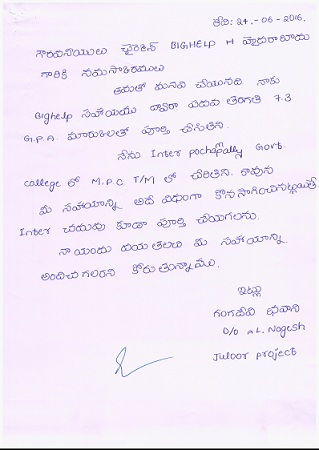 తేది: 24.-06-2016.
గౌరవనీయులు చైర్మెన్ BIGHELP H హైదరాబాదు
గారికి నమస్కారములు
తమతో మనవి చేయునది. నాకు
Bighelp సహాయము ద్వారా పదవ తరగతి 7.3
G.P.A. మార్కులతో పూర్తి చేసితిని.
నేను Inter pochapally Govt.
college లో M.P.C T/M లో చేరితిని. కావున
మీ సహాయాన్ని అదే విధంగా కొనసాగించినట్లయితే
Inter చదువు కూడా పూర్తి చేయగలను.
నా యందు దయతలచి మీ సహాయాన్ని
అందించగలరని కోరుతున్నాము.
ఇట్లు
గంగదేవి భవాని
D/o L. Nagesh
Juloor project